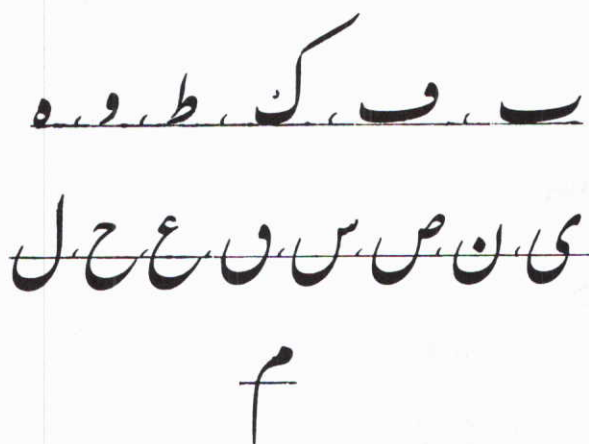 ٮ ، ڡ ، ك ، ط ، و ، ه
ى ، ن ، ص ، س ، ٯ ، ع ، ح ، ل
م